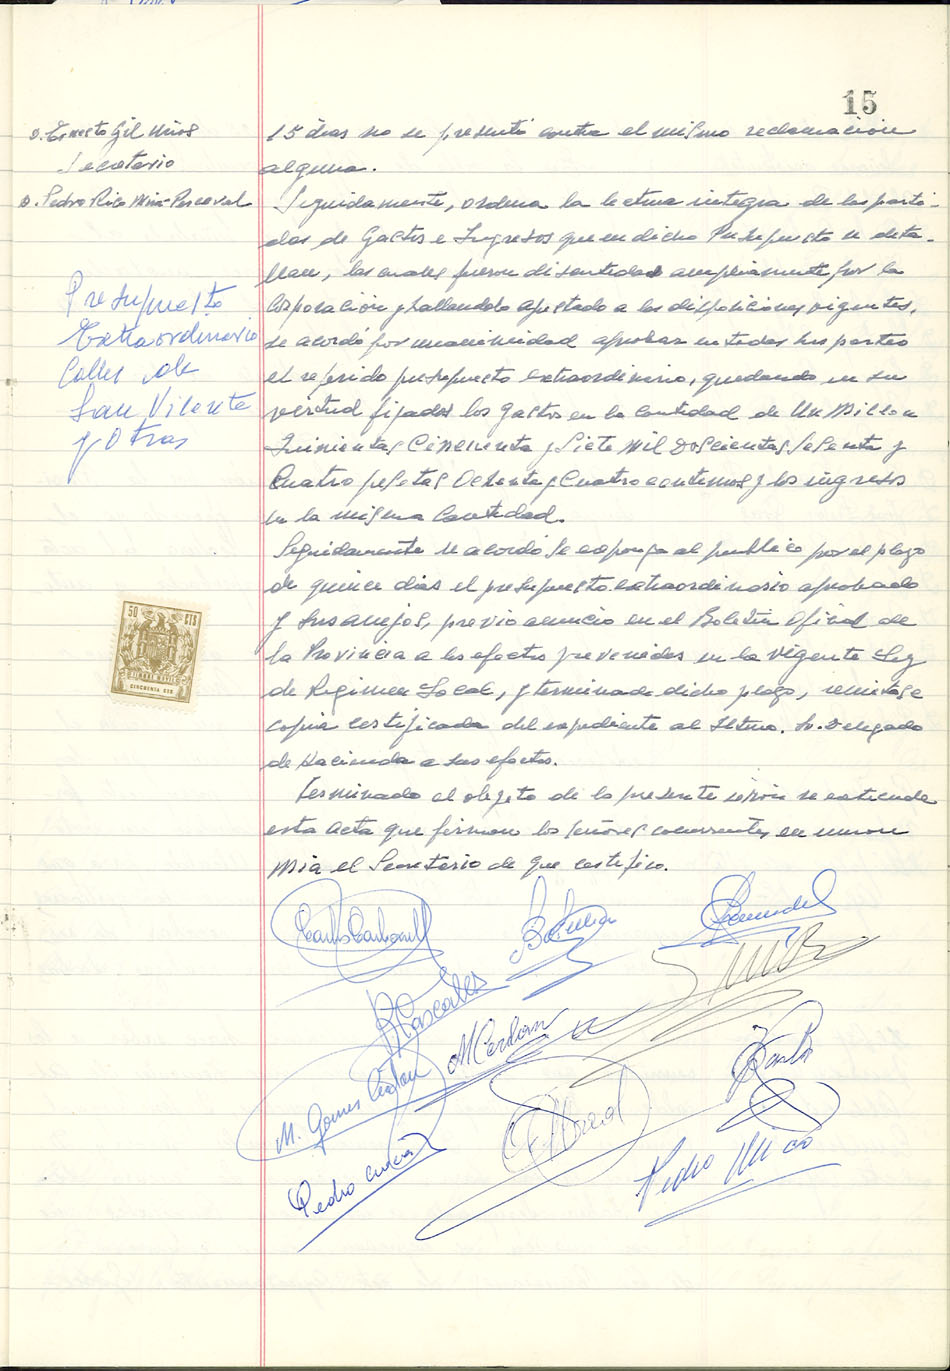 15
D. Ernesto Gil Miños
Secretario
D. Pedro Rico
Presupuesto
Extraordinario
Calles de
San Vicente
y Otras
50 CTS
TIMBRE MOVIL
CINCUENTA CTS
15 dias no se presentó contra el mismo reclamacion
alguna.
Seguidamente, ordena la lectura integra de las parti-
das de Gastos e Ingresos que en dicho Presupuesto se deta-
llan, las cuales fueron discutidas ampliamente por la
Corporación y hallandolo ajustado a las disposiciones vigentes,
se acordó por unanimidad aprobar en todas sus partes
el referido presupuesto extraordinario, quedando en su
virtud fijados los Gastos en la Cantidad de Un Millon
Quinientas Cincuenta y Siete Mil Doscientas Sesenta y
Cuatro pesetas Ochenta y Cuatro centimos y los ingresos
en la misma Cantidad.
Seguidamente se acordó se exponga al publico por el plazo
de quince dias el presupuesto extraordinario aprobado
y sus anejos, previo anuncio en el Boletin Oficial de
la Provincia a los efectos prevenidos en la vigente Ley
de Regimen Local, y terminado dicho plazo, remitase
copia certificada del expediente al Iltmo. Sr. Delegado
de Hacienda a sus efectos.
Terminado el objeto de la presente sesión se extiende
esta acta que firman los señores concurrentes en union
mia el Secretario de que certifico.
Carlos Carbonell
Pascales
M. Cerdan
M. Gomez
Pedro
Pedro Mico